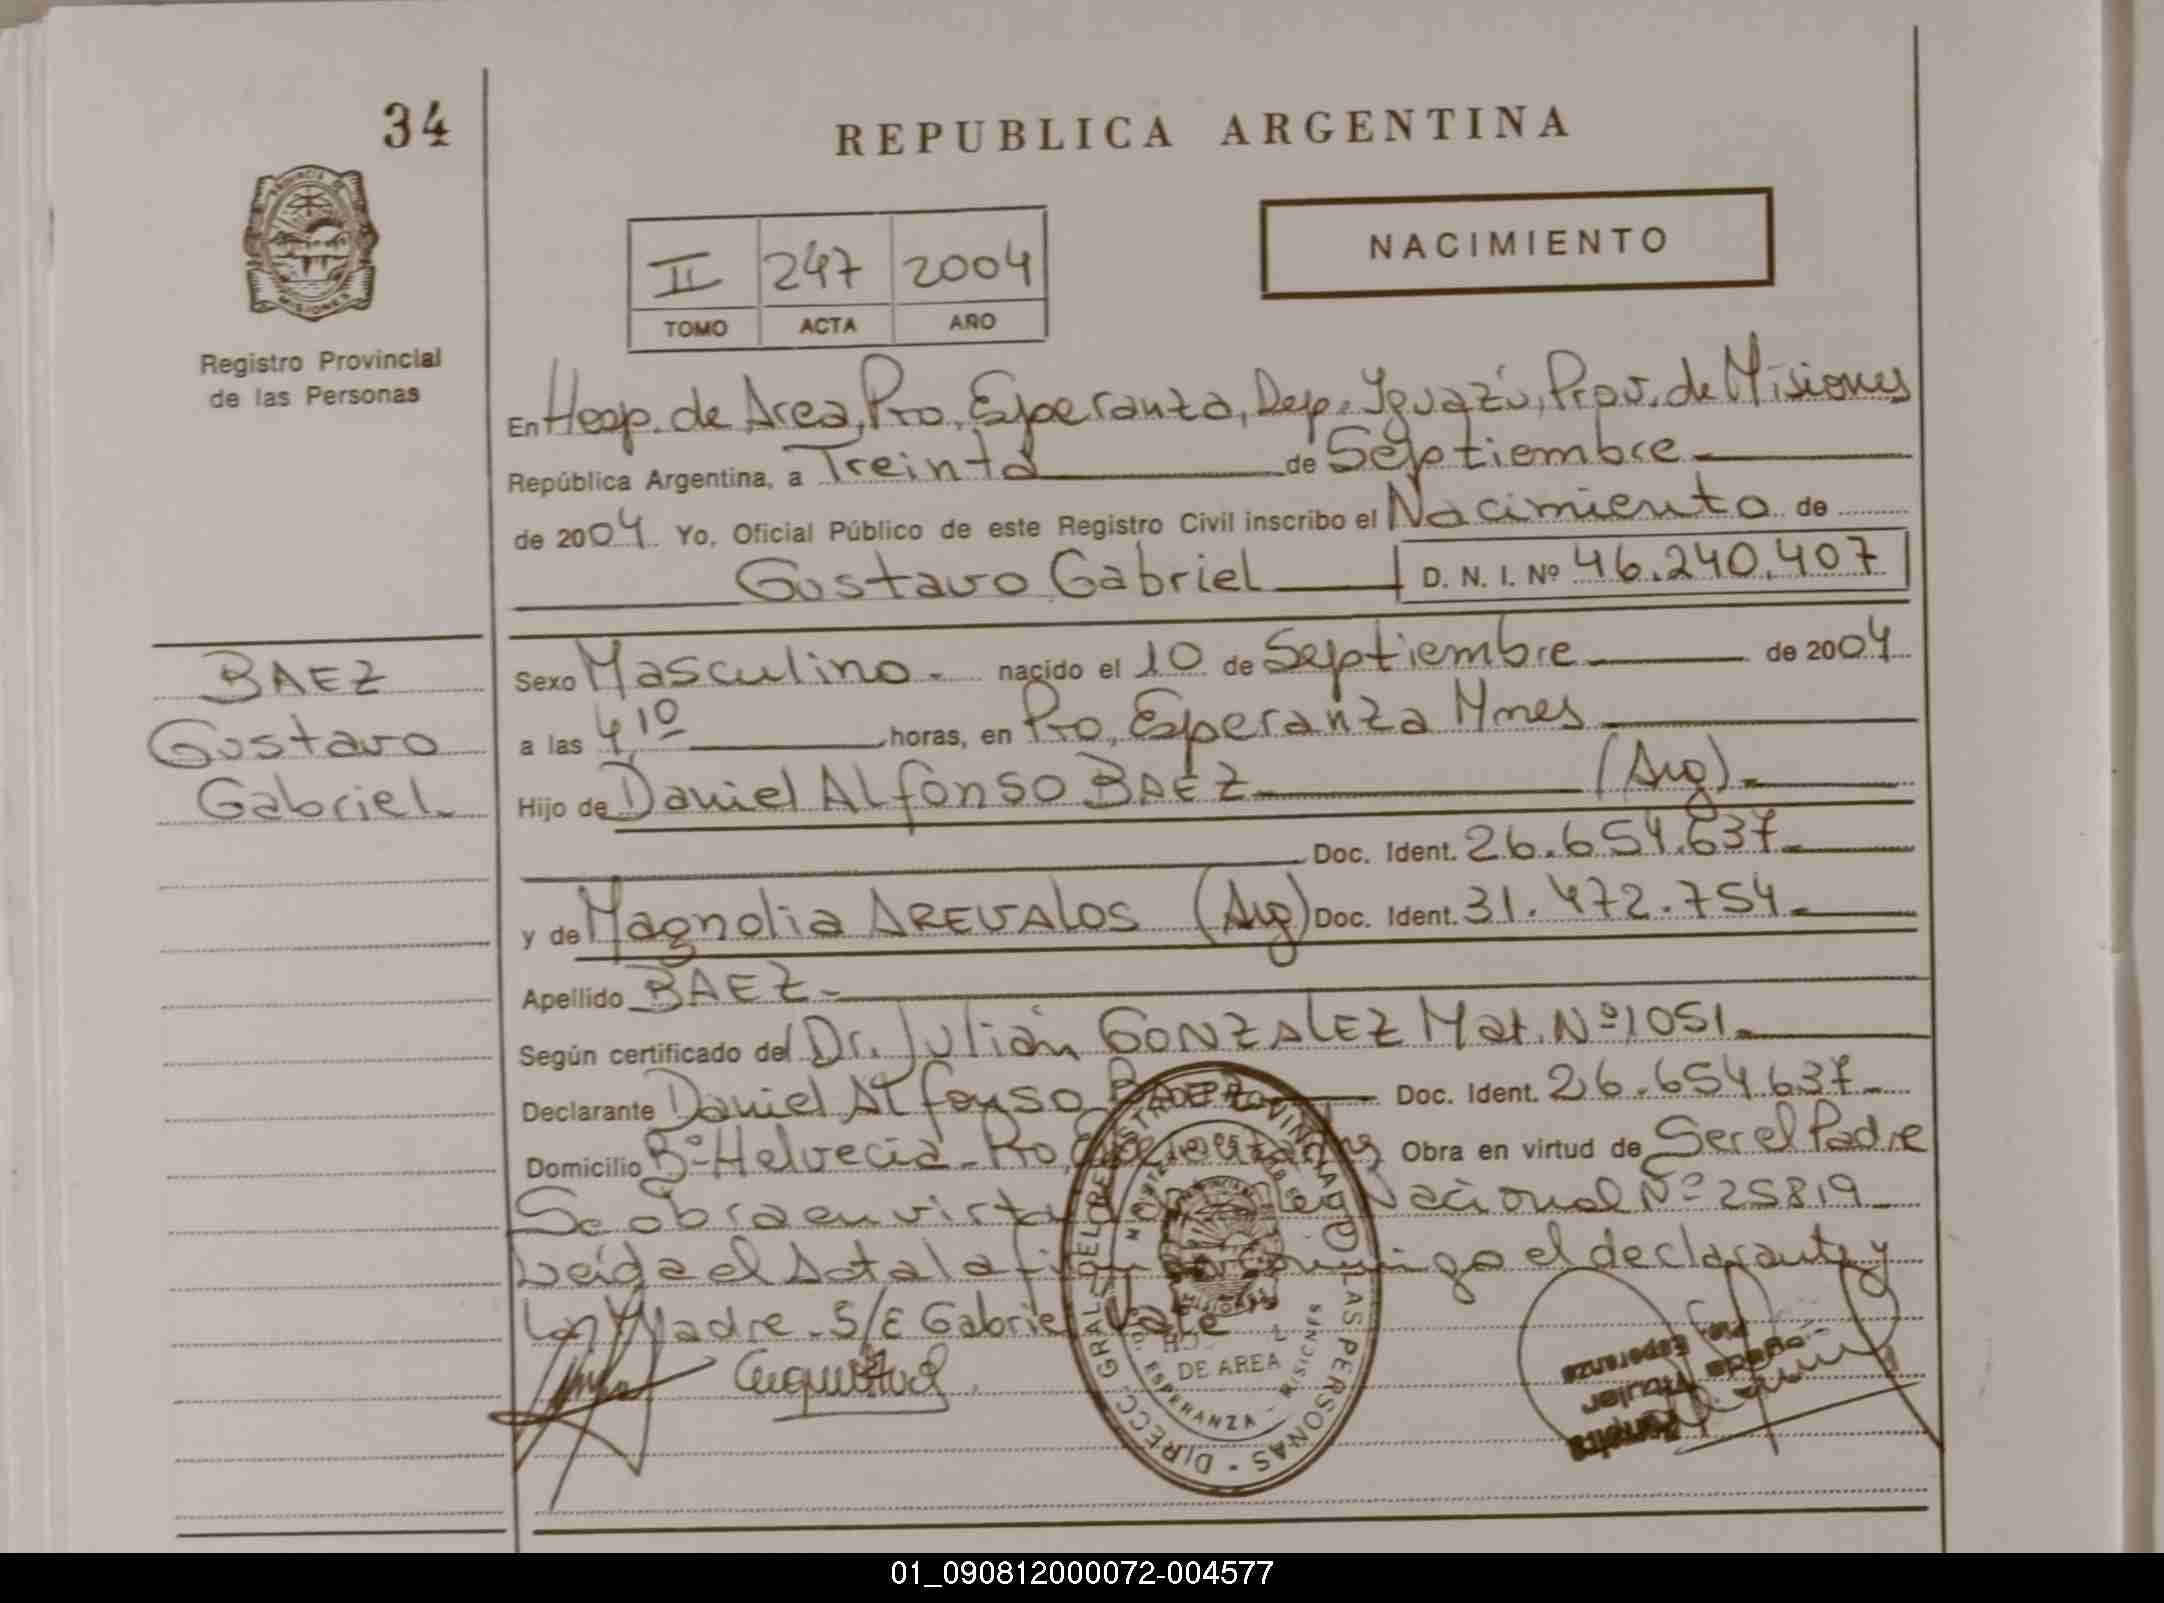 34
REPUBLICA ARGENTINA
PROVINCIA DE
MISIONES
Registro Provincial
de las Personas
NACIMIENTO
II 247 2004
TOMO ACTA AÑO
En Hosp. de Area, Pto. Esperanza, Dep. Iguazú, Prov. de Misiones
República Argentina, a Treinta de Septiembre
de 2004 Yo, Oficial Público de este Registro Civil inscribo el Nacimiento de
Gustavo Gabriel D. N. I. Nº 46.240.407
BAEZ
Gustavo
Gabriel
Sexo Masculino. nacido el 10 de Septiembre de 2004
a las 4,10 horas, en Pto. Esperanza Mnes
Hijo de Daniel Alfonso BAEZ (Arg).
Doc. Ident. 26.654.637.
y de Magnolia AREVALOS (Arg) Doc. Ident. 31.472.754.
Apellido BAEZ.
Según certificado del Dr. Julián GONZALEZ Mat. Nº 1051.
Declarante Daniel Alfonso BAEZ Doc. Ident. 26.654.637.
Domicilio Bº Helvecia - Pto. Obra en virtud de Ser el Padre
Se obra en virtud Ley Nacional Nº 25819
Leída el Acta la conmigo el declarante y
la Madre. S/E Gabriel Vale
DIRECC. GRAL. DEL REGISTRO PROVINCIAL DE LAS PERSONAS
DE AREA
ESPERANZA - MISIONES
Titular
Pto. Esperanza
01_090812000072-004577